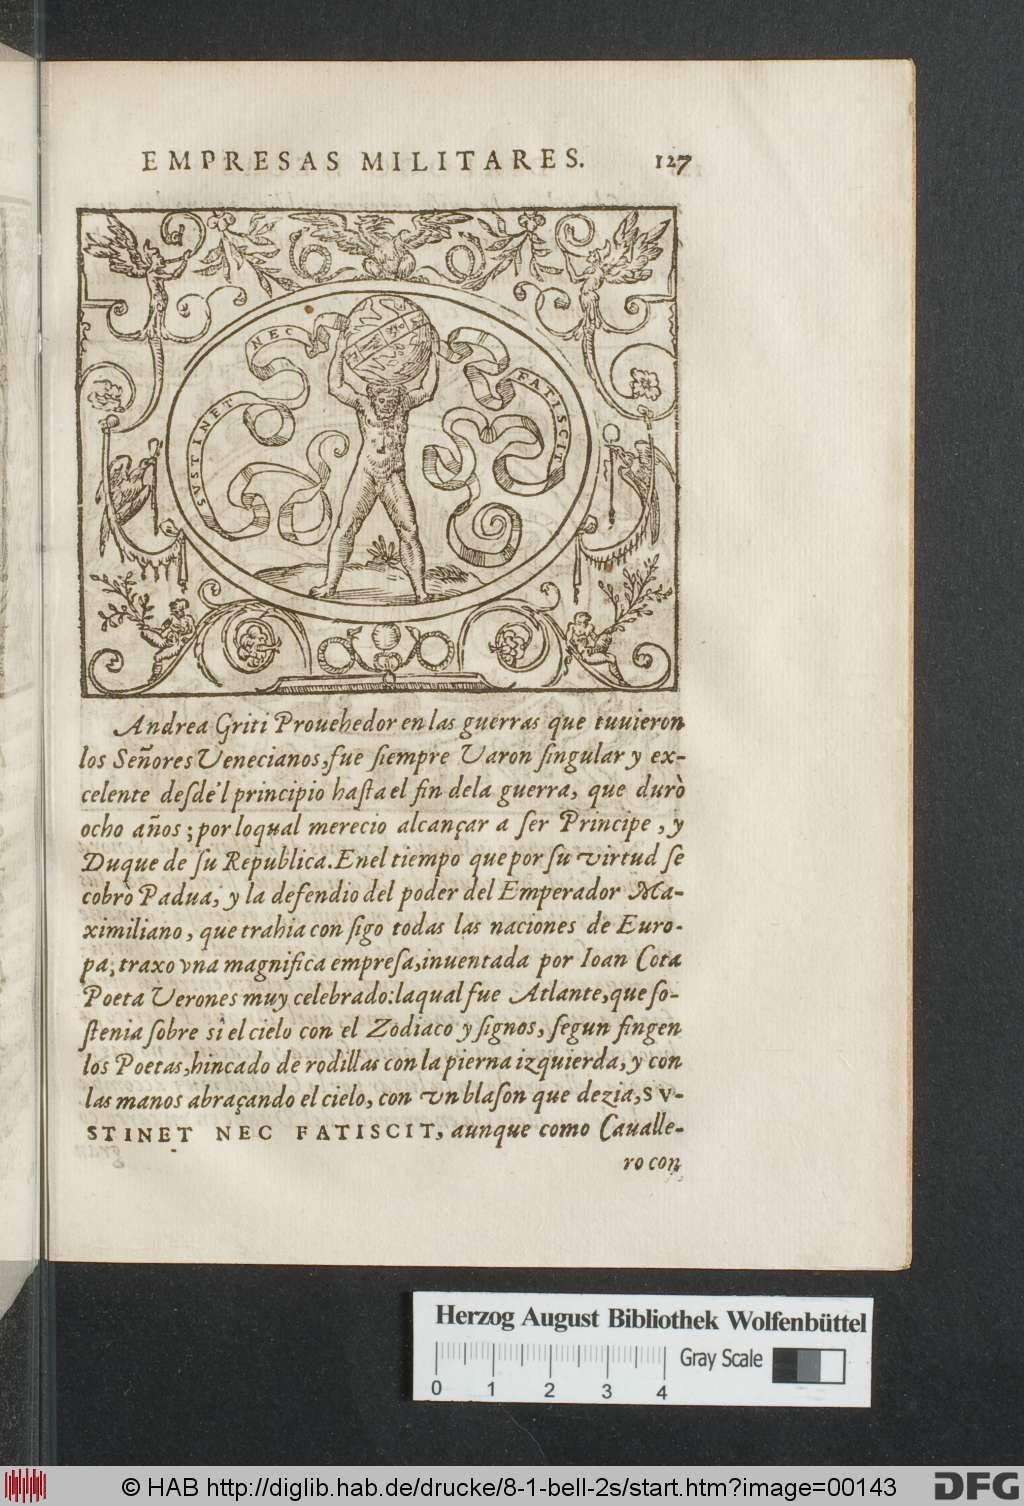 EMPRESAS MILITARES. 127
SVSTINET
NEC
FATISCIT
Andrea Griti Prouehedor en las guerras que tuuieron
los Señores Venecianos, fue ſiempre Varon ſingular y ex-
celente deſde'l principio haſta el fin dela guerra, que durò
ocho años; por loqual merecio alcançar a ſer Principe, y
Duque de ſu Republica. Enel tiempo que por ſu virtud ſe
cobrò Padua, y la defendio del poder del Emperador Ma-
ximiliano, que trahia con ſigo todas las naciones de Euro-
pa; traxo vna magnifica empreſa, inuentada por Ioan Cota
Poeta Verones muy celebrado: laqual fue Atlante, que ſo-
ſtenia ſobre sì el cielo con el Zodiaco y ſignos, ſegun fingen
los Poetas, hincado de rodillas con la pierna izquierda, y con
las manos abraçando el cielo, con vn blaſon que dezia, SV-
STINET NEC FATISCIT, aunque como Cauалle-
ro con
Herzog August Bibliothek Wolfenbüttel
Gray Scale
0 1 2 3 4
© HAB http://diglib.hab.de/drucke/8-1-bell-2s/start.htm?image=00143
DFG